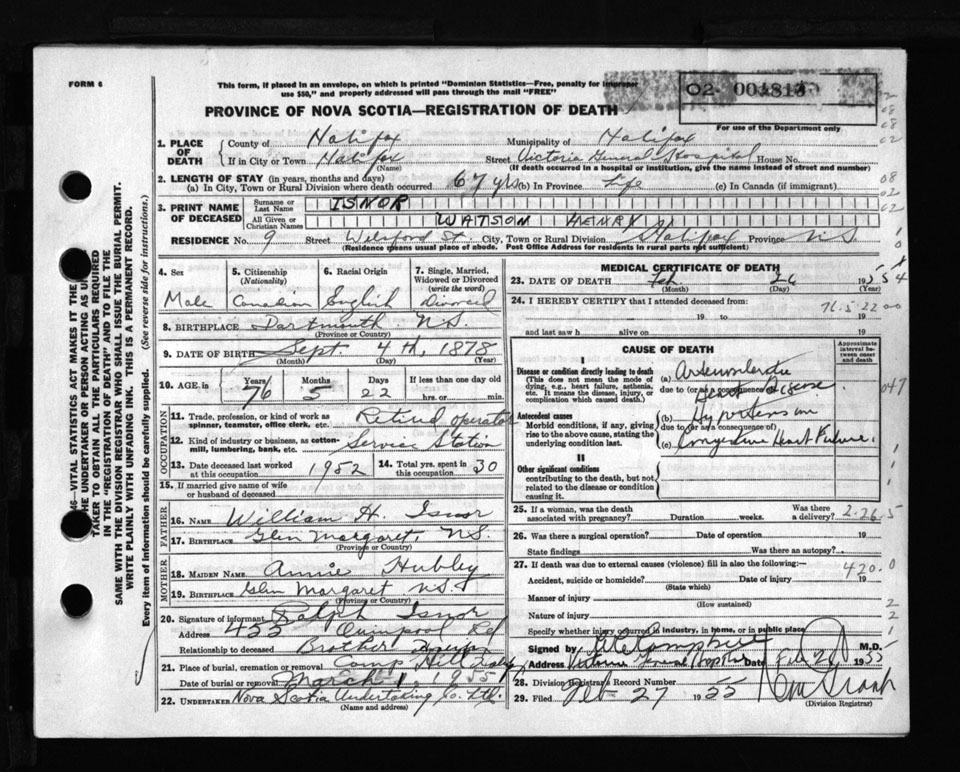 FORM 6
This form, if placed in an envelope, on which is printed "Dominion Statistics—Free, penalty for improper
use $50," and properly addressed will pass through the mail "FREE"
PROVINCE OF NOVA SCOTIA—REGISTRATION OF DEATH
02 001813
For use of the Department only
1. PLACE OF DEATH
County of Halifax Municipality of Halifax
If in City or Town Halifax Street Victoria General Hospital House No.
(Name) (If death occurred in a hospital or institution, give the name instead of street and number)
2. LENGTH OF STAY (in years, months and days)
(a) In City, Town or Rural Division where death occurred 67 yrs (b) In Province Life (c) In Canada (if immigrant)
3. PRINT NAME OF DECEASED
Surname or Last Name ISNOR
All Given or Christian Names WATSON HENRY
RESIDENCE No. 9 Street Welsford St. City, Town or Rural Division Halifax Province N.S.
(Residence means usual place of abode. Post Office Address for residents in rural parts not sufficient)
4. Sex Male
5. Citizenship (Nationality) Canadian
6. Racial Origin English
7. Single, Married, Widowed or Divorced (write the word) Divorced
8. BIRTHPLACE Dartmouth N.S.
(Province or Country)
9. DATE OF BIRTH Sept. 4th, 1878
(Month) (Day) (Year)
10. AGE in Years 76 Months 5 Days 22 If less than one day old hrs. or min.
OCCUPATION
11. Trade, profession, or kind of work as spinner, teamster, office clerk, etc. Retired operator
12. Kind of industry or business, as cotton-mill, lumbering, bank, etc. Service Station
13. Date deceased last worked at this occupation 1952 14. Total yrs. spent in this occupation 30
15. If married give name of wife or husband of deceased
FATHER
16. NAME William H. Isnor
17. BIRTHPLACE Glen Margaret, N.S.
(Province or Country)
MOTHER
18. MAIDEN NAME Annie Hubley
19. BIRTHPLACE Glen Margaret N.S.
(Province or Country)
20. Signature of informant Ralph Isnor
Address 455 Quinpool Rd
Relationship to deceased Brother
21. Place of burial, cremation or removal Camp Hill
Date of burial or removal March 1, 1955
22. UNDERTAKER Nova Scotia Undertaking Co. Ltd.
(Name and address)
MEDICAL CERTIFICATE OF DEATH
23. DATE OF DEATH Feb. 26 1955
(Month) (Day) (Year)
24. I HEREBY CERTIFY that I attended deceased from:
76-5-22 00
19 to 19
and last saw h alive on 19
CAUSE OF DEATH
Approximate interval between onset and death
I
Disease or condition directly leading to death
(This does not mean the mode of dying, e.g., heart failure, asthenia, etc. It means the disease, injury, or complication which caused death.)
(a) Arteriosclerotic Heart Disease
due to (or as a consequence of)
Antecedent causes
Morbid conditions, if any, giving rise to the above cause, stating the underlying condition last.
(b) Hypertension
due to (or as a consequence of)
(c) Congestive Heart Failure.
II
Other significant conditions
contributing to the death, but not related to the disease or condition causing it.
25. If a woman, was the death associated with pregnancy? Duration weeks. Was there a delivery? 2-26-5
26. Was there a surgical operation? Date of operation 19
State findings Was there an autopsy?
27. If death was due to external causes (violence) fill in also the following: 420.0
Accident, suicide or homicide? Date of injury 19
(State which)
Manner of injury
(How sustained)
Nature of injury
Specify whether injury occurred in industry, in home, or in public place
Signed by Campbell M.D.
Address Victoria General Hospital Date Feb 26 1955
28. Division Registrar's Record Number
29. Filed Feb-27 1955
(Division Registrar)
46—VITAL STATISTICS ACT MAKES IT THE
THE UNDERTAKER OR PERSON ACTING AS
TAKER TO OBTAIN ALL THE PARTICULARS REQUIRED
IN THE "REGISTRATION OF DEATH" AND TO FILE THE
SAME WITH THE DIVISION REGISTRAR WHO SHALL ISSUE THE BURIAL PERMIT.
WRITE PLAINLY WITH UNFADING INK. THIS IS A PERMANENT RECORD.
Every item of information should be carefully supplied. (See reverse side for instructions.)